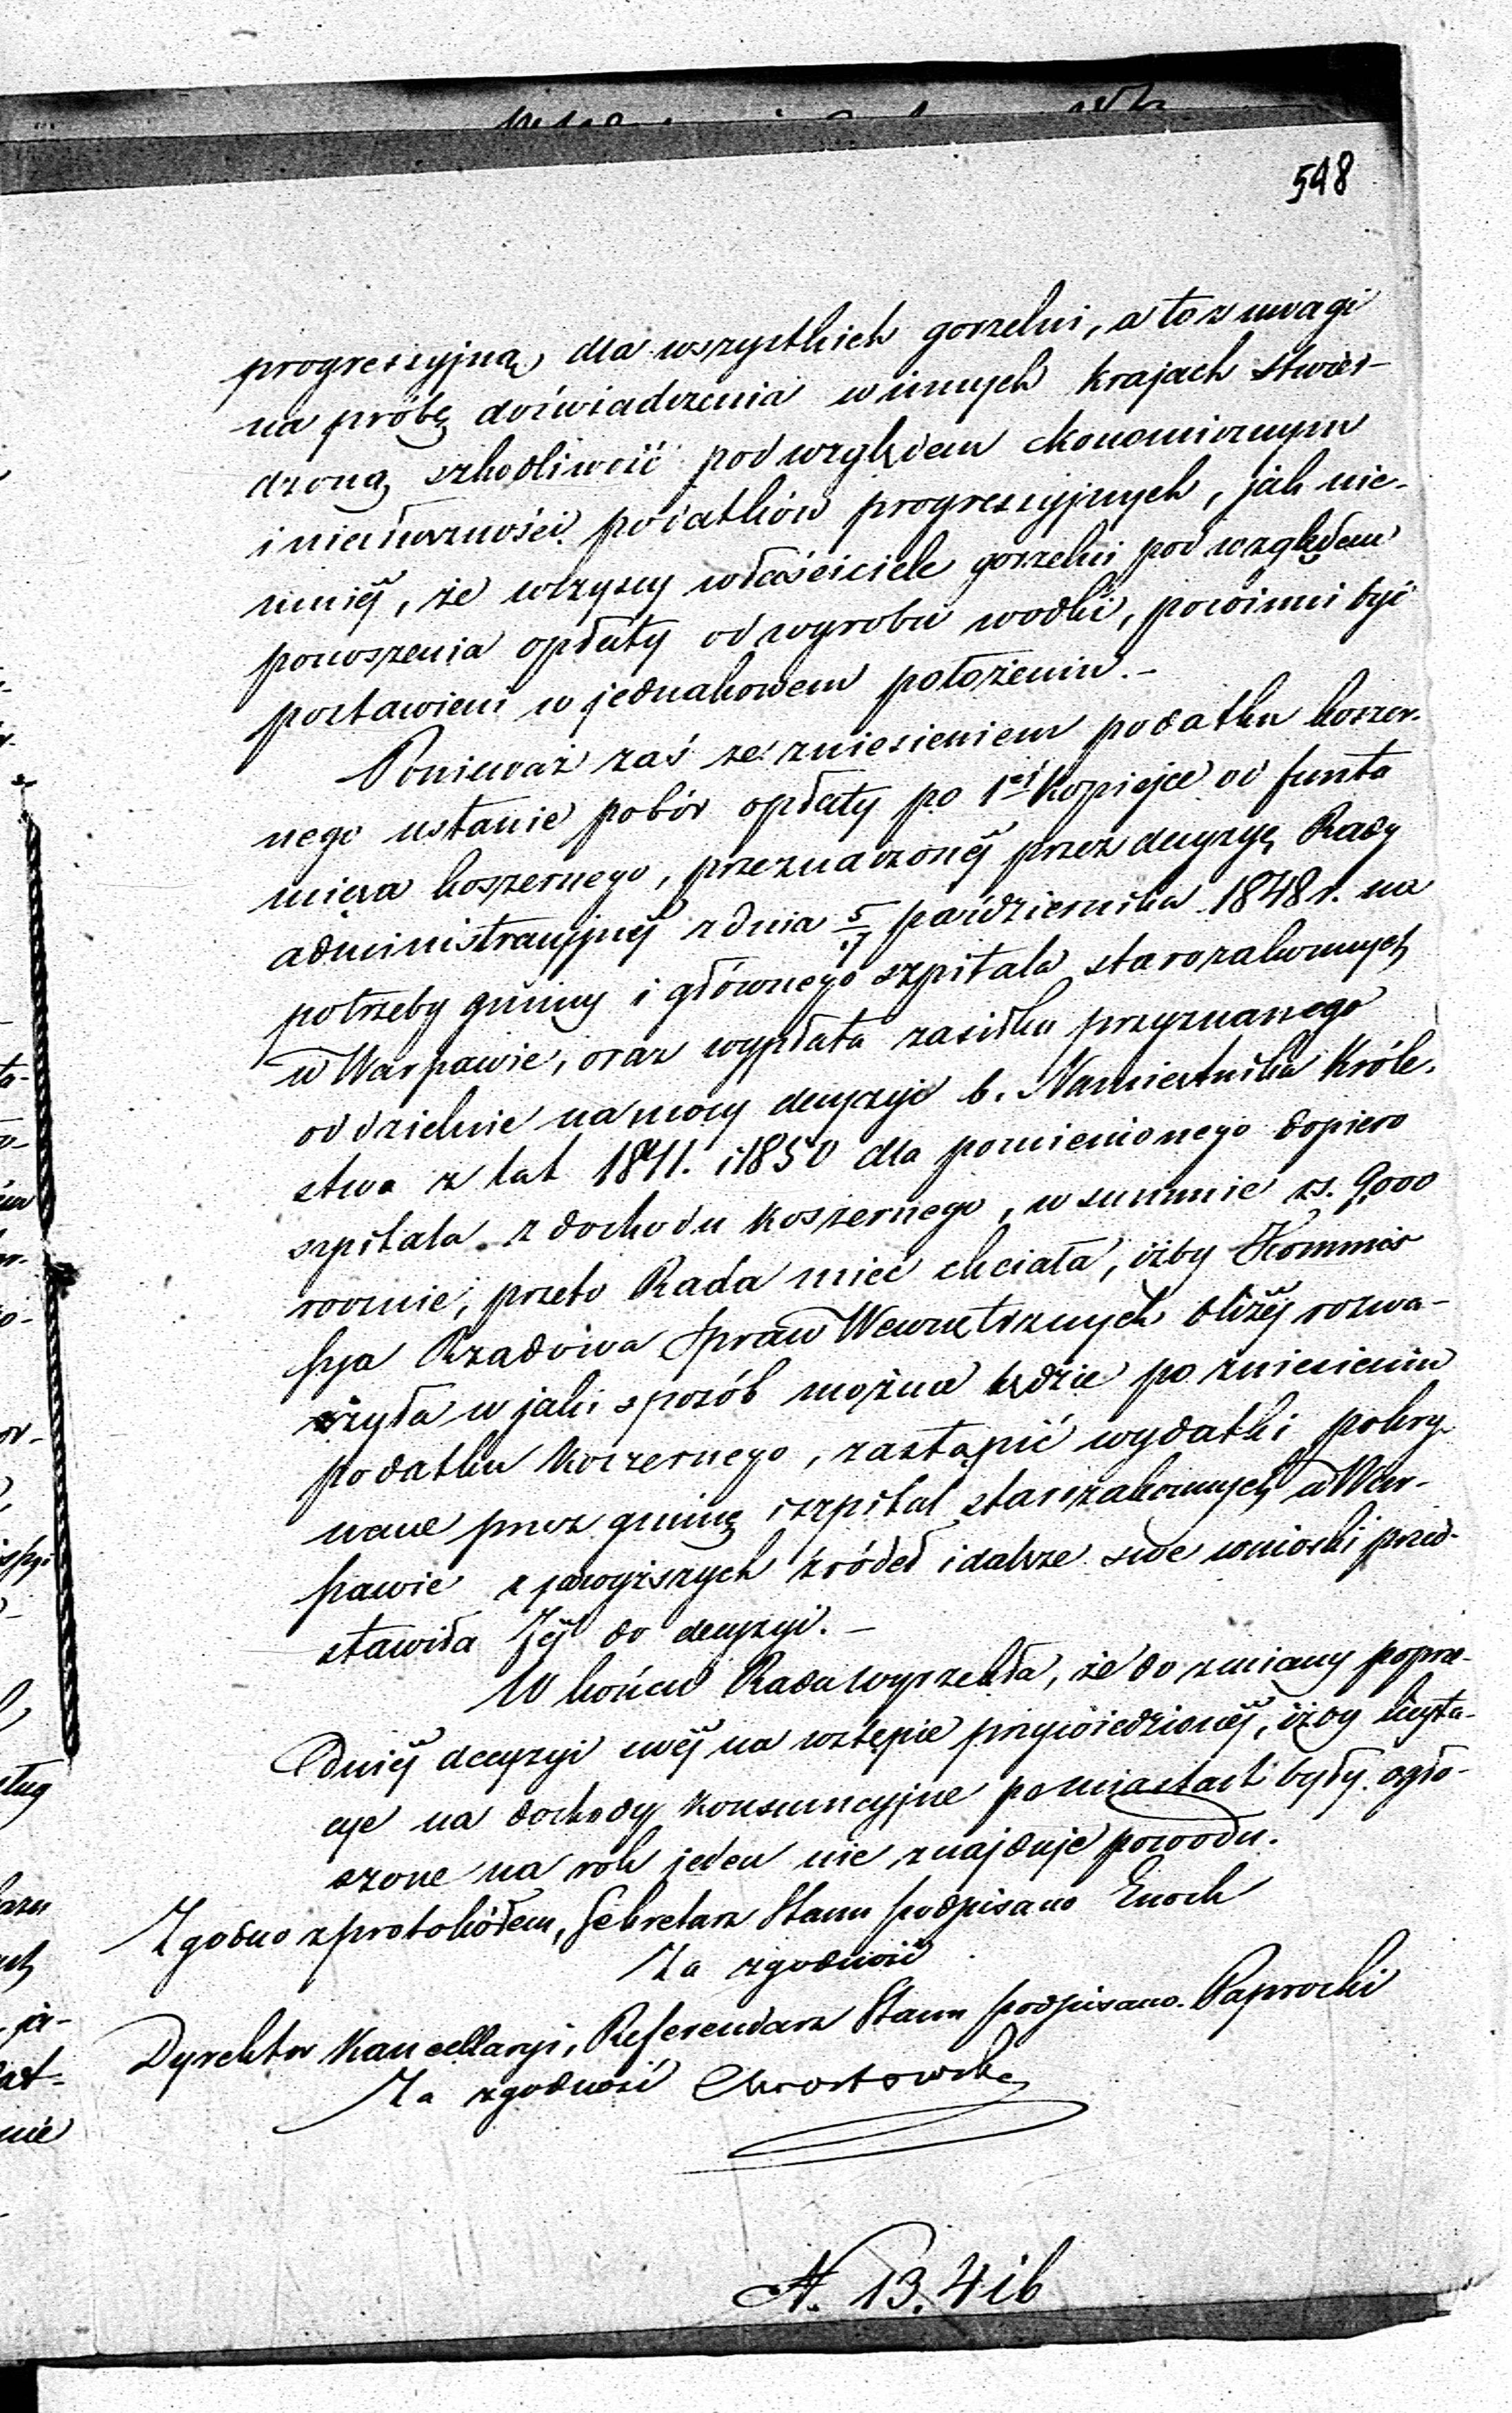 548
progressyjną, dla wszystkich gorzelni, a to z uwagi
na próbę doświadczenia w innych krajach stwier-
dzoną szkodliwość pod względem ekonomicznym
i niesłuszności podatków progressyjnych, jak nie-
mniéj, że wszyscy właściciele gorzelni pod względem
ponoszenia opłaty od wyrobu wódki, powinni być
postawieni w jednakowem położeniu.-
Ponieważ zaś ze zniesieniem podatku koszer-
nego ustanie pobór opłaty po 1éj kopiejce od funta
mięsa koszernego, przeznaczonéj przez decyzyę Rady
administracyjnéj z dnia 5/17 października 1848 r. na
potrzeby gminy i głównego szpitala starozakonnych
w Warszawie, oraz wypłata zasiłku przyznanego
oddzielnie na mocy decyzyi b. Namiestnika Króle-
stwa z lat 1841. i 1850 dla pomienionego dopiero
szpitala z dochodu koszernego, w summie rs. 9,000
rocznie, przeto Rada mieć chciała, iżby Kommis
syja Rządowa Spraw Wewnętrznych bliżéj rozwa-
żyła w jaki sposób można będzie po zniesieniu
podatku koszernego, zastąpić wydatki pokry-
wane przez gminę i szpital starozakonnych w War-
szawie z powyższych źródeł i dalsze swe wnioski przed-
stawiła Jéj do decyzyi. -
W końcu Rada wyrzekła, że do zmiany poprze-
dniéj decyzyi swéj na wstępie przywiedzionéj, iżby licyta-
cye na dochody konsumcyjne po miastach były ogło-
szone na rok jeden nie znajduje powodu.
Zgodno z protokółem, Sekretarz Stanu podpisano Enoch
Za zgodność
Dyrektor Kancellaryi, Referendarz Stanu podpisano. Paprocki
Za zgodność
N. 13.416